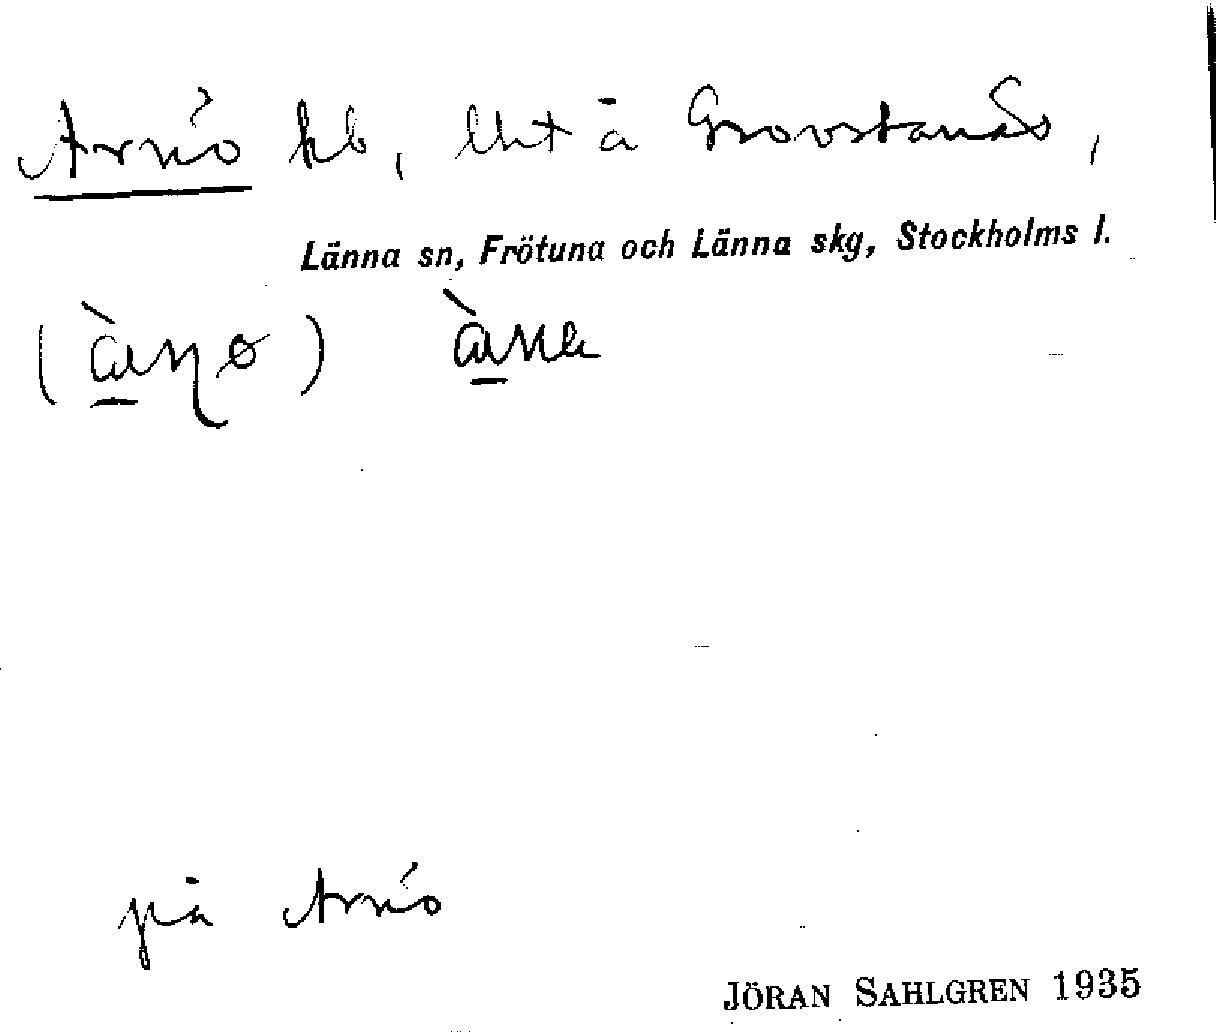 Arnö hb, lht å Grovstanäs,
Länna sn, Frötuna och Länna skg, Stockholms l.
på Arnö
JÖRAN SAHLGREN 1935